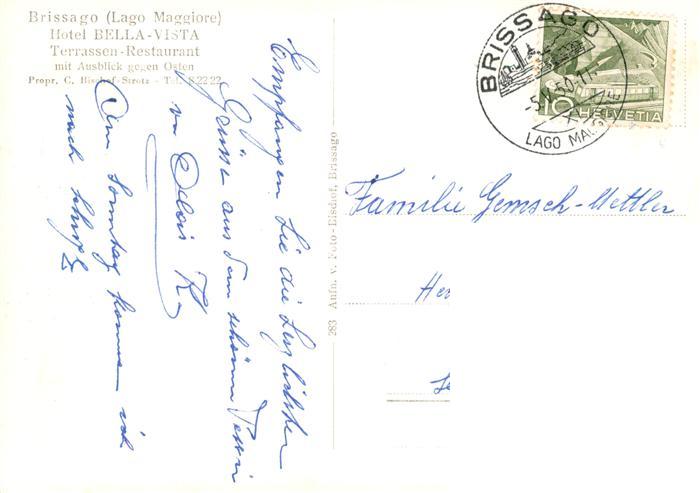 Brissago (Lago Maggiore)
Hotel BELLA-VISTA
Terrassen-Restaurant
mit Ausblick gegen Osten
Propr. C. Bischof-Strotz - Tel. 8 22 22
Empfangen Sie die herzlichsten
Grüsse aus dem schönen Tessin
von Alois K.
Am Sonntag komme ich
nach
283 Aufn. v. Foto-Eisdhof, Brissago
BRISSAGO
LAGO MAGGIORE
10 HELVETIA
Familie Gemsch-Mettler